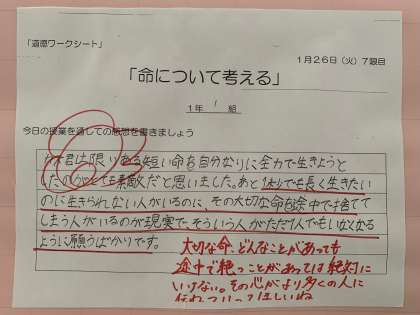 「道徳ワークシート」
1月26日（火）7限目
「命について考える」
1年 1 組
今日の授業を通しての感想を書きましょう
君は限りある短い命を自分なりに全力で生きようと
したのがとても素敵だと思いました。あと1秒でも長く生きたい
のに生きられない人がいるのに、その大切な命を途中で捨てて
しまう人がいるのが現実で、そういう人がただ1人でもいなくなる
ように願うばかりです。
大切な命、どんなことがあっても
途中で絶つことがあっては絶対に
いけない。その心がより多くの人に
伝わっていってほしいね